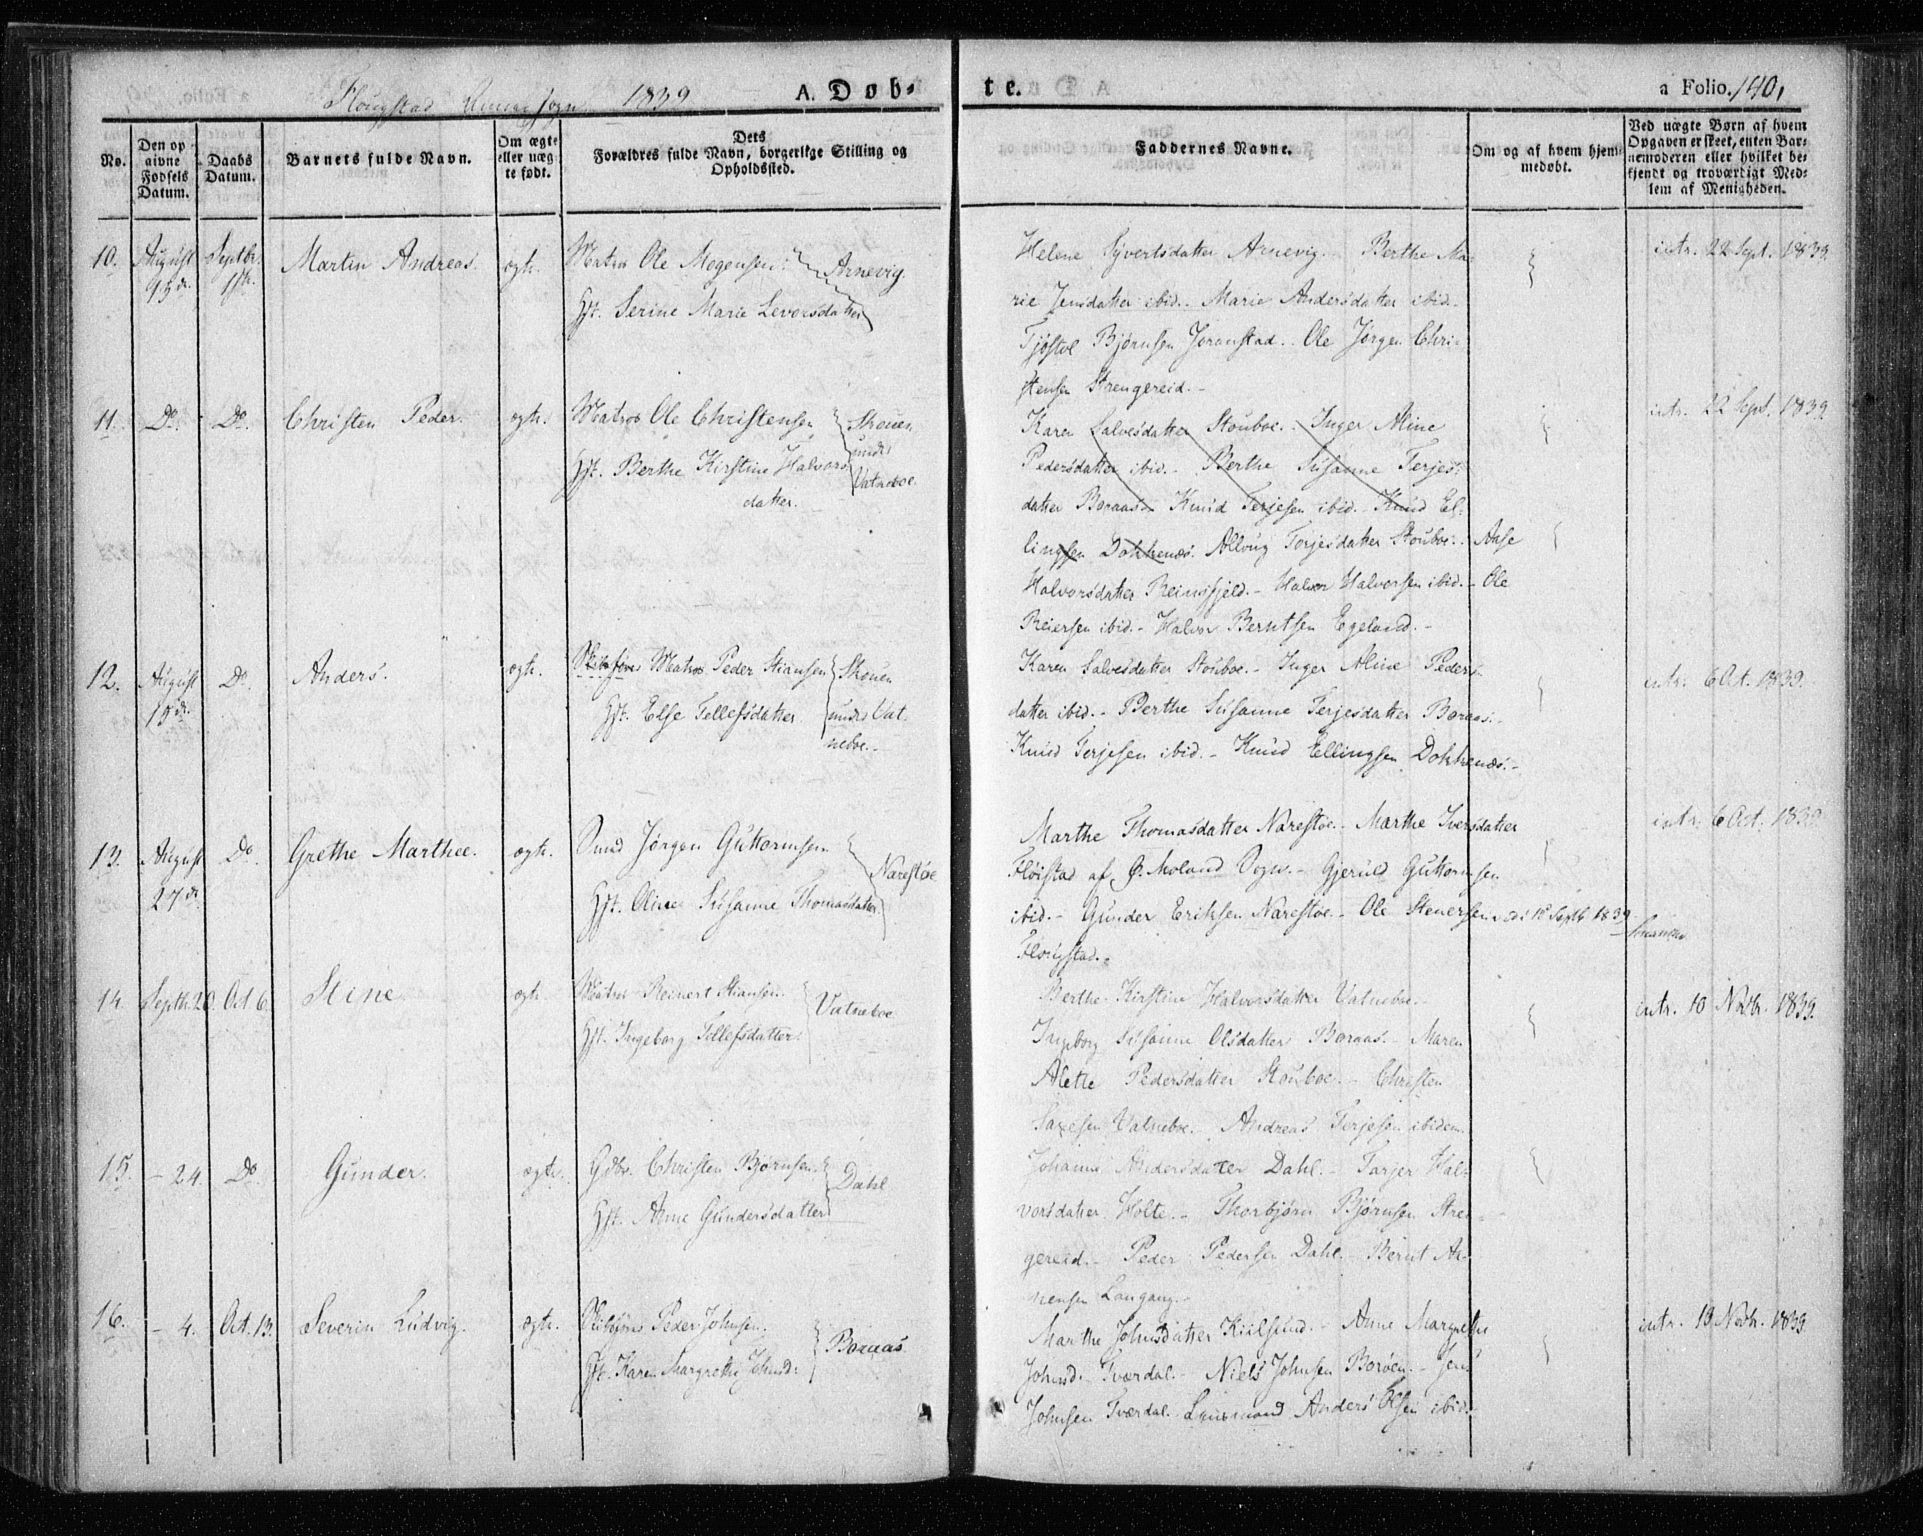 Flougstad Annexsogn 1839
A. Døb-
te.
a Folio. 140,
No.
Den op
givne
Fødsels
Datum.
Daabs
Datum.
Barnets fulde Navn.
Om ægte
eller uæg
te født.
Dets
Forældres fulde Navn, borgerlige Stilling og
Opholdssted.
Faddernes Navne.
Om og af hvem hjem-
medøbt.
Ved uægte Børn af hvem
Opgaven er skeet, enten Bar-
nemoderen eller hvilket be-
kjendt og troværdigt Med-
lem af Menigheden.
10. August 15de Septbr. 1ste Martin Andreas. ægte. Matros Ole Mogensen Arnevig.
Hst. Serine Marie Leversdatter
Helene Syvertsdatter Arnevig. Berthe Ma-
rie Jensdatter ibid. Marie Andersdatter ibid.
Tjøstel Bjørnsen Joranstad. Ole Jørgen Chri-
stensen Strengereid. -
intr. 22 Sept. 1839.
11. Do. Do. Christen Peder. ægte. Matros Ole Christensen
Hst. Berthe Kirstine Halvors
datter.
Skouen
under
Vatneboe.
Karen Salvesdatter Stouboe. Inger Aline
Pedersdatter ibid. - Berthe Susanne Terjes-
datter Boraas. Knud Terjesen ibid. Knud El-
lingsen Dokkenæs. Alloug Terjesdatter Stouboe. Aase
Halvorsdatter Reinsfjeld. - Halvor Halvorsen ibid. - Ole
Reiersen ibid. - Halvor Berntsen Egeland. -
intr. 22 Sept. 1839.
12. August 18de Do. Anders. ægte. Matros Peder Stiansen
Hst. Else Tellefsdatter
Skouen
under Vat-
neboe. -
Karen Salvesdatter Stouboe. - Inger Aline Peders-
datter ibid. - Berthe Susanne Terjesdatter Boraas. -
Knud Terjesen ibid. - Knud Ellingsen Dokkenæs. -
intr. 6 Oct. 1839.
13. August 27de Do Grethe Marthee. ægte. Jørgen Guttormsen
Hst. Oline Susanne Thomasdatter
Narestøe
Marthe Thomasdatter Narestøe. - Marthe Iversdatter
Fløistad af Ø. Moland Sogn. - Gjeruld Guttormsen
ibid. - Gunder Eriksen Narestøe. - Ole Stenersen
Flougstad. -
intr. 6 Oct. 1839.
14. Septbr. 20. Oct. 6. Stine. ægte. Matros Steinert Stiansen.
Hst. Ingeborg Tellefsdatter.
Vatneboe
Berthe Kirstine Halvorsdatter Vatneboe. -
Ingeborg Susanne Olsdatter Boraas. - Maren
Alette Pedersdatter Stouboe. - Christen
Saxesen Vatneboe. Andreas Terjesen ibidem.
intr. 10 Novbr. 1839.
15. - 24. Do Gunder. ægte. Gdbr. Christen Bjørnsen
Hst. Anne Gundersdatter
Dahl
Johanne Andersdatter Dahl. - Tarjer Hal-
vorsdatter Holte. - Thorbjørn Bjørnsen Stren-
gereid. - Peder Pedersen Dahl. - Bernt An-
nensen Langang. -
16. - 4. Oct. 13. Severin Ludvig. ægte. Peder Johnsen.
Hst. Karen Margrethe Johnsd.
Boraas
Marthe Johnsdatter Kiilsund. - Anne Margrethe
Johnsd. Tværdal. - Niels Johnsen Borøen. - Jens
Johnsen Tværdal. Lensmand Anders Olsen ibid.
intr. 13 Novbr. 1839